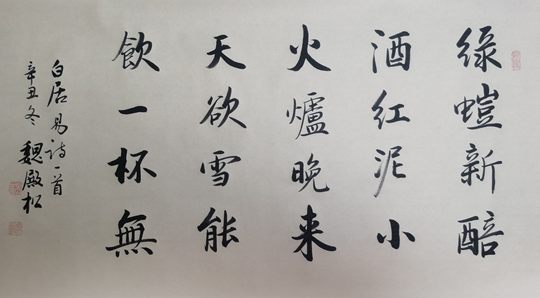 綠螘新醅
酒紅泥小
火爐晚来
天欲雪能
飲一杯無
白居易詩一首
辛丑冬 魏殿松